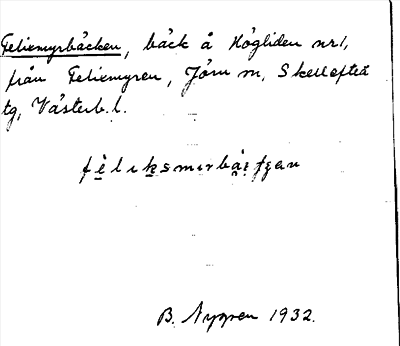 Felixmyrbäcken, bäck å Högliden nr 1,
från Felixmyren, Jörn sn, Skellefteå
tg, Västerb. l.
B. Nygren 1932.